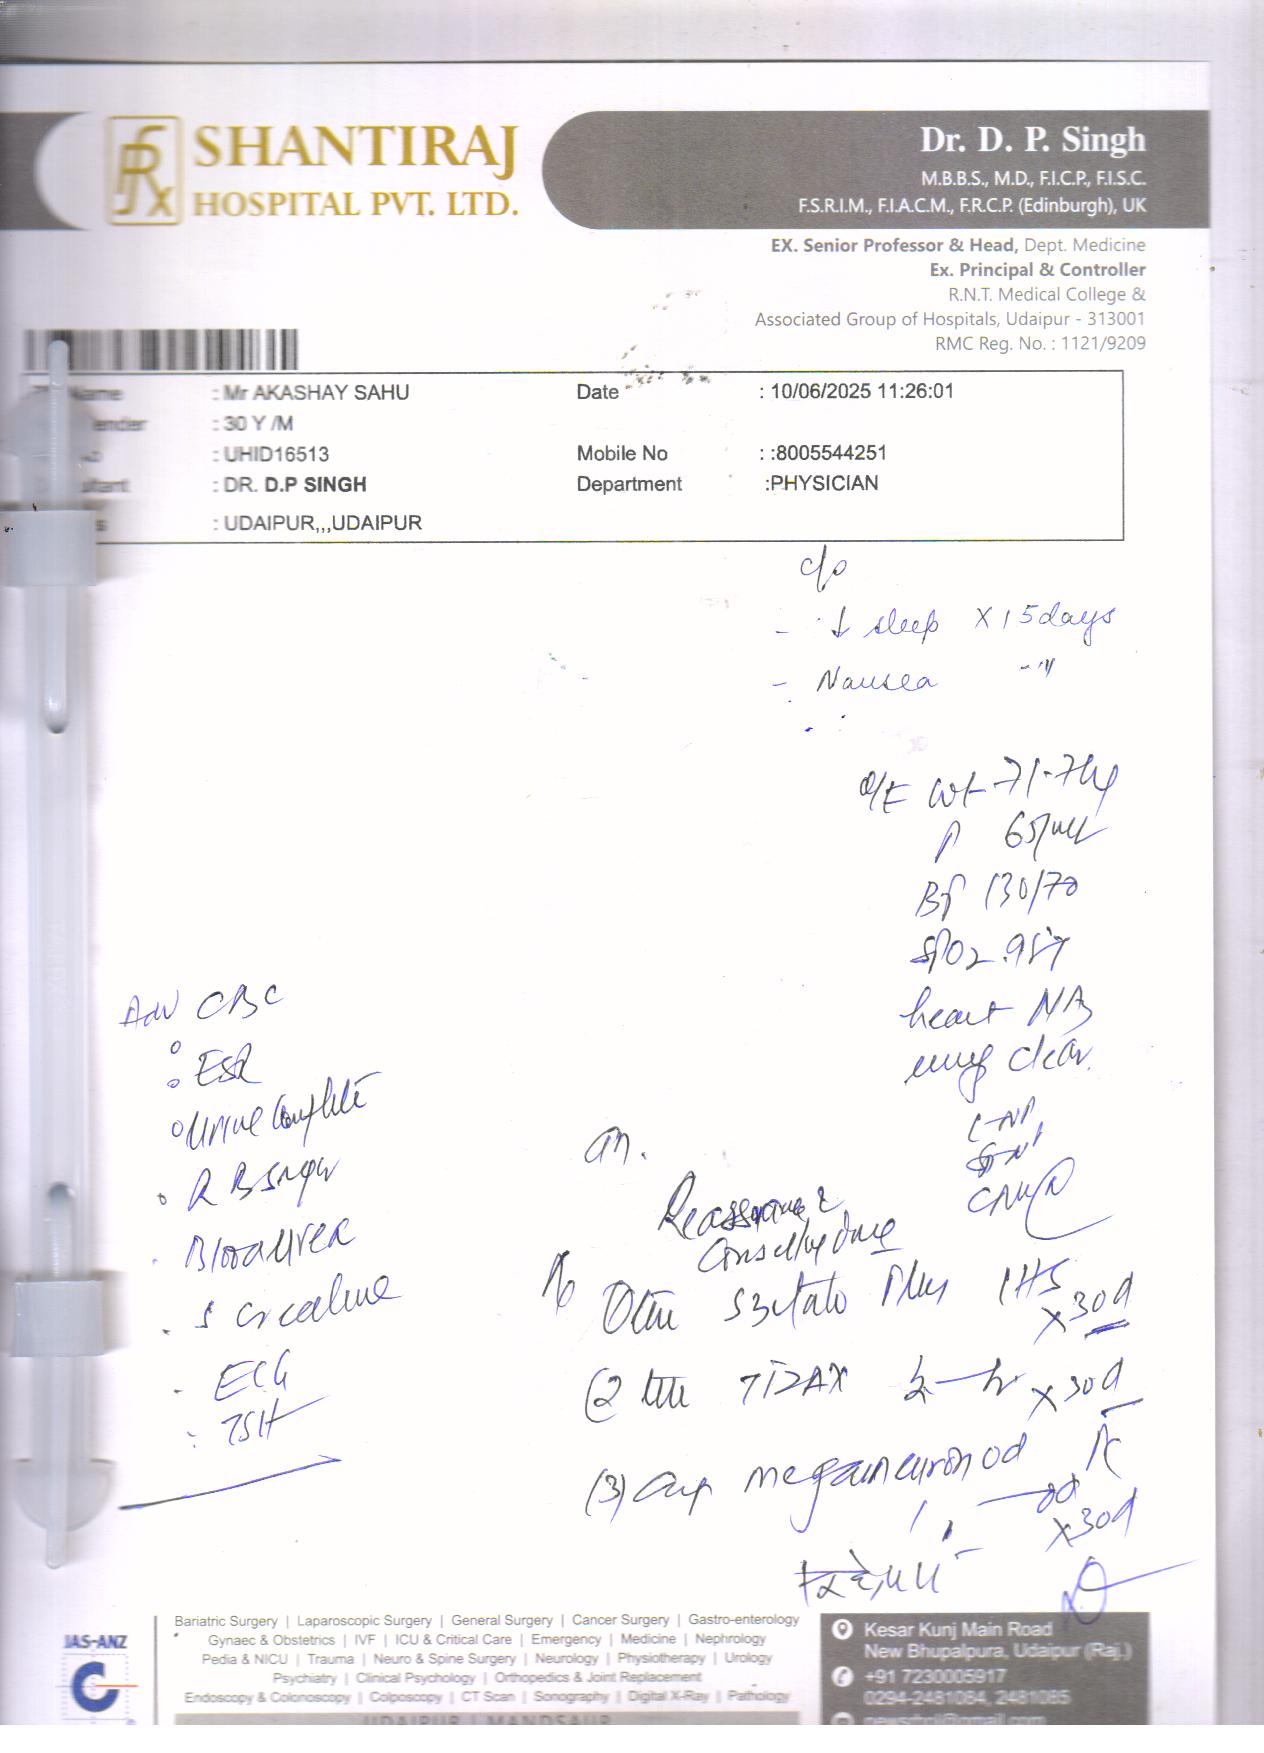 SHANTIRAJ
HOSPITAL PVT. LTD.
Dr. D. P. Singh
M.B.B.S., M.D., F.I.C.P., F.I.S.C.
F.S.R.I.M., F.I.A.C.M., F.R.C.P. (Edinburgh), UK
EX. Senior Professor & Head, Dept. Medicine
Ex. Principal & Controller
R.N.T. Medical College &
Associated Group of Hospitals, Udaipur - 313001
RMC Reg. No. : 1121/9209
Name : Mr AKASHAY SAHU Date : 10/06/2025 11:26:01
ender : 30 Y /M
: UHID16513 Mobile No : :8005544251
ltant : DR. D.P SINGH Department :PHYSICIAN
s : UDAIPUR,,,UDAIPUR
c/o
- ↓ sleep X 15 days
- Nausea -"
O/E Wt- 71.7kg
P 65/
BP 130/70
SPO2 .98%
heart
lung clear
CNS
Adv CBC
ESR
Urine Complete
R B Sugar
Blood Urea
S Creatinine
ECG
TSH
Reassurance &
done
Plus 1HS
x30d
(2) x30d
(3) Cap megāneuron od
x30d
JAS-ANZ
Bariatric Surgery | Laparoscopic Surgery | General Surgery | Cancer Surgery | Gastro-enterology
Gynaec & Obstetrics | IVF | ICU & Critical Care | Emergency | Medicine | Nephrology
Pedia & NICU | Trauma | Neuro & Spine Surgery | Neurology | Physiotherapy | Urology
Psychiatry | Clinical Psychology | Orthopedics & Joint Replacement
Endoscopy & Colonoscopy | Colposcopy | CT Scan | Sonography | Digital X-Ray | Pathology
UDAIPUR | MANDSAUR
Kesar Kunj Main Road
New Bhupalpura, Udaipur (Raj.)
+91 7230005917
0294-2481084, 2481085